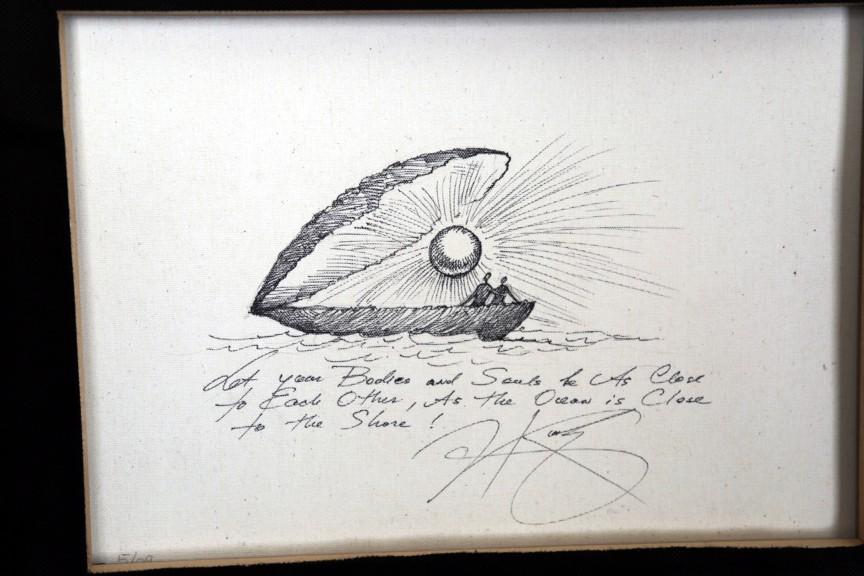 Let your Bodies and Souls be As Close
to Each Other, As the Ocean is Close
to the Shore!